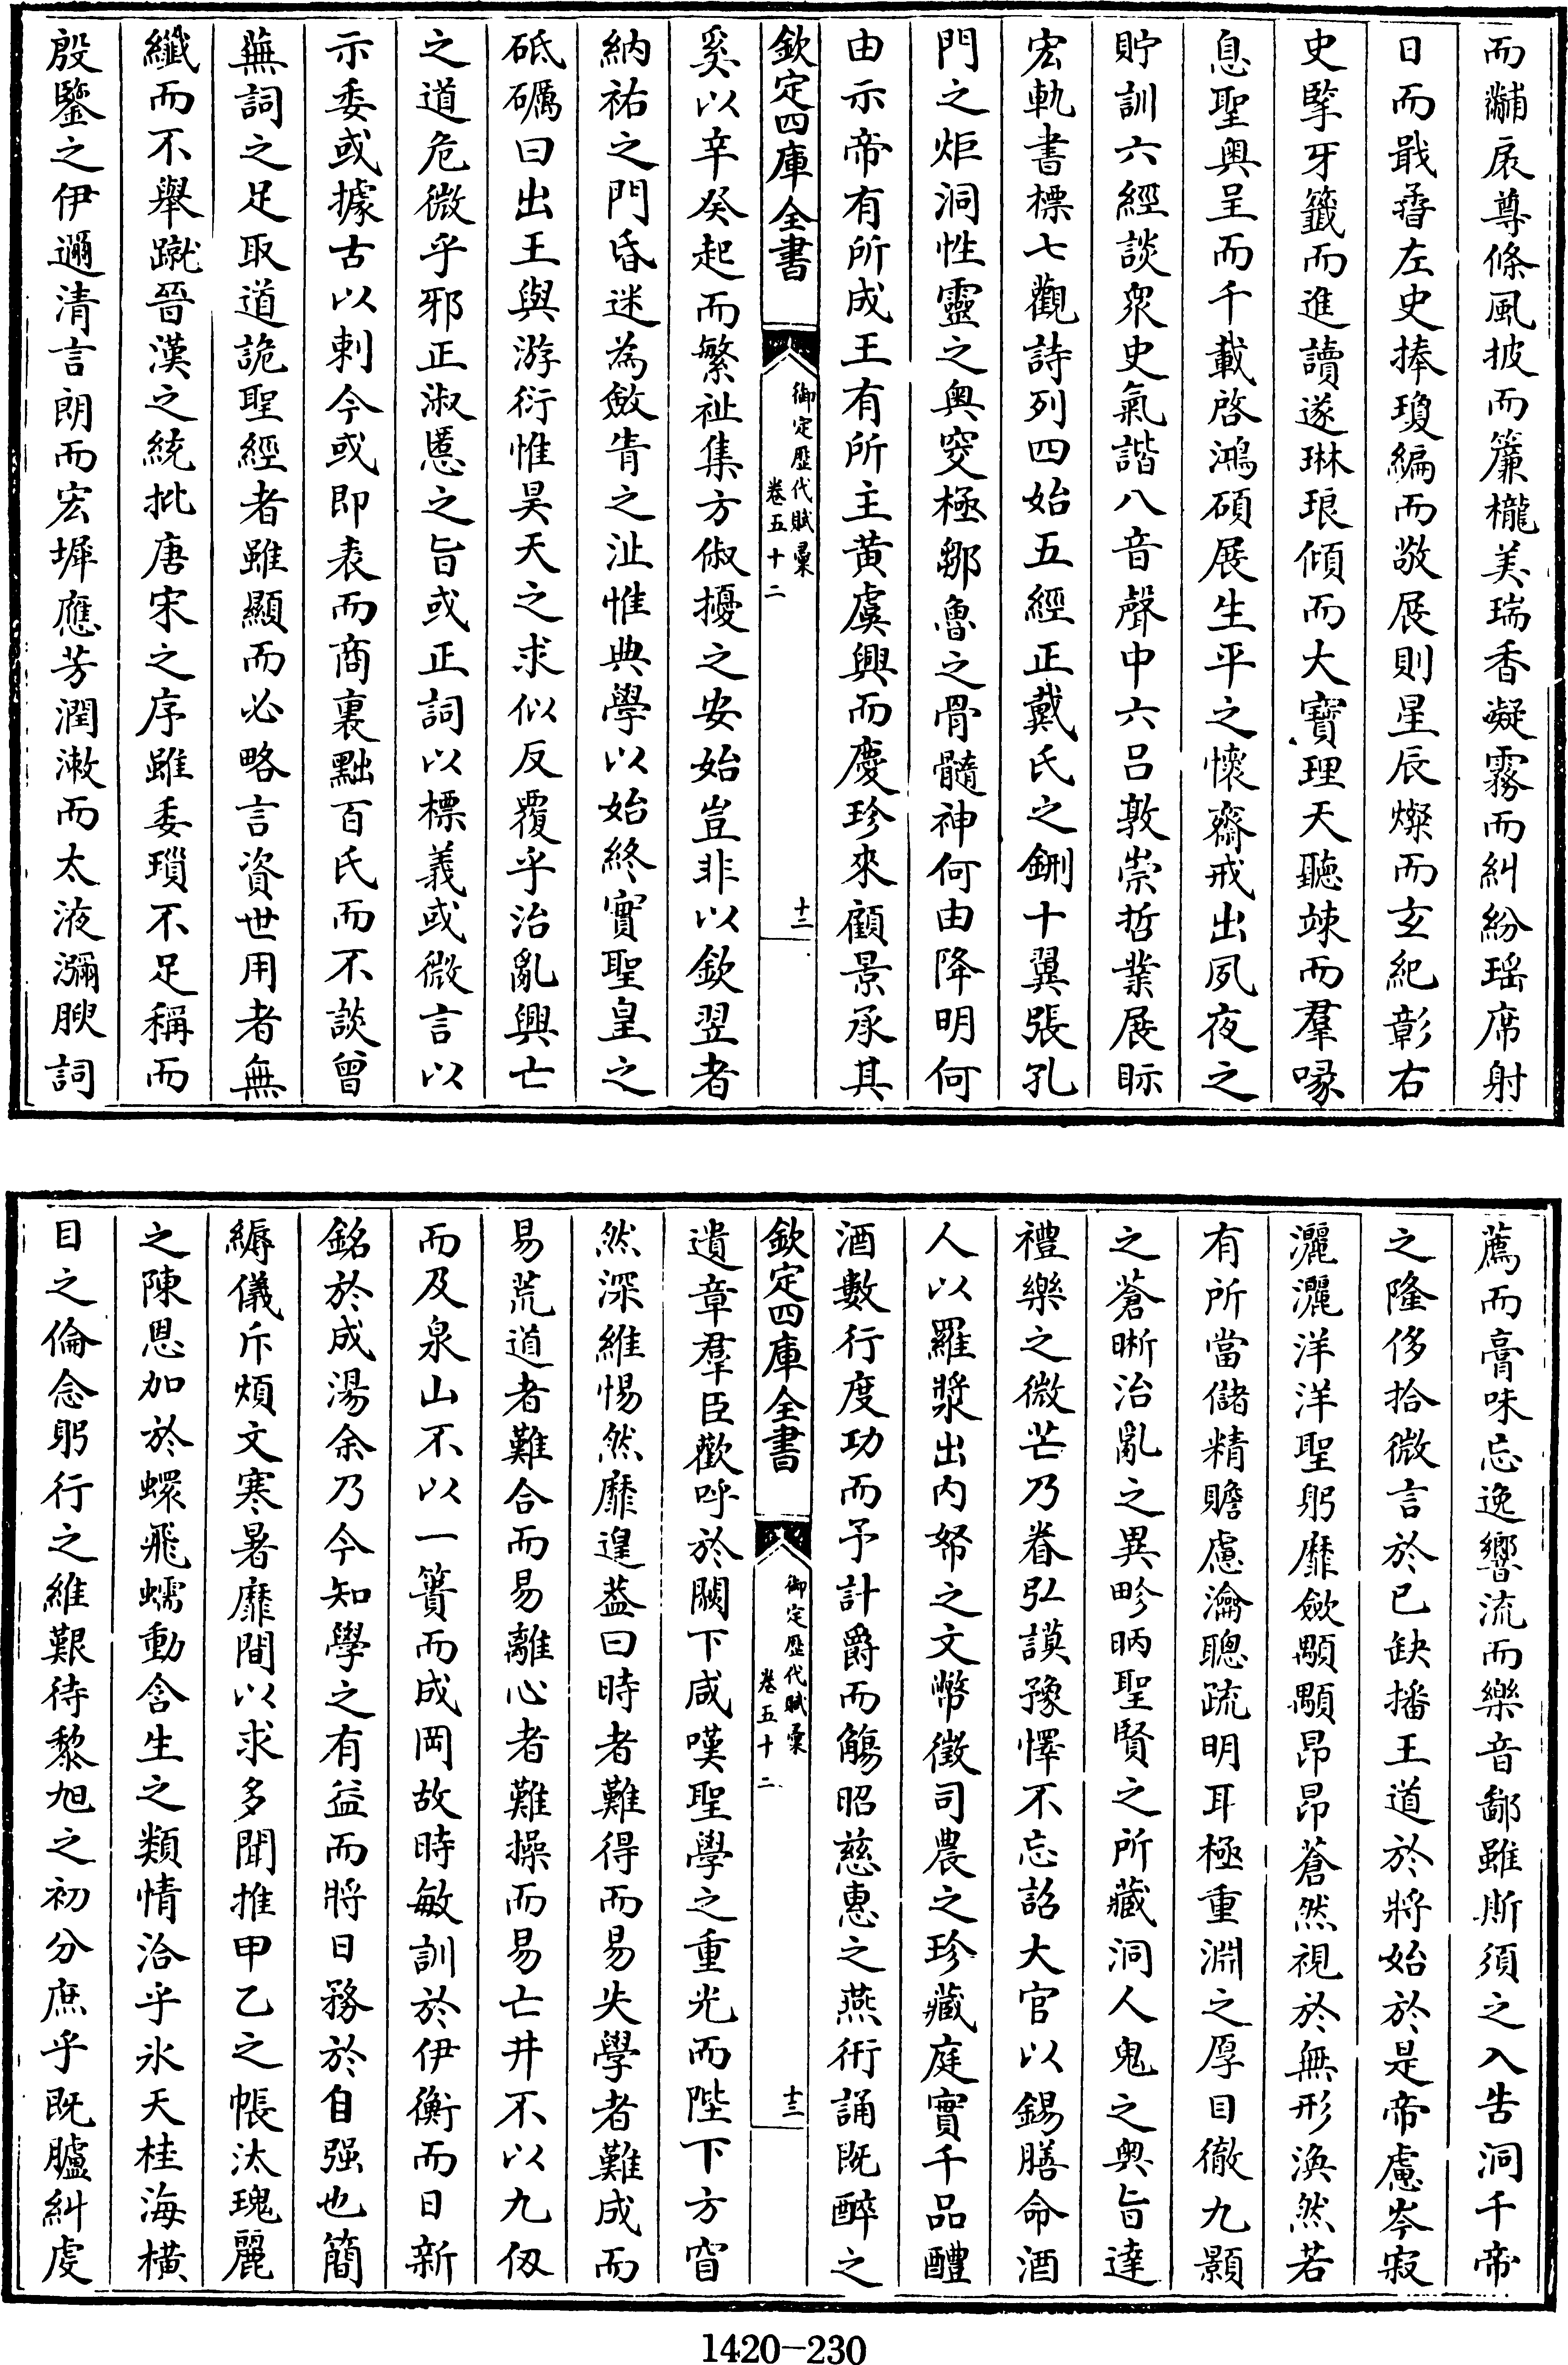 而黼扆尊條風披而簾櫳美瑞香凝霧而糾紛瑶席射
日而戢孴左史捧瓊編而敬展則星辰燦而玄紀彰右
史擎牙籤而進讀遂琳琅傾而大寶理天聽竦而羣喙
息聖奥呈而千載啓鴻碩展生平之懷齋戒出夙夜之
貯訓六經談衆史氣諧八音聲中六吕敦崇哲業展眎
宏軌書標七觀詩列四始五經正戴氏之鉶十翼張孔
門之炬洞性靈之奥窔極鄒魯之骨髓神何由降明何
由示帝有所成王有所主黄虞興而慶珍來顧景承其
欽定四庫全書
御定歴代賦彚
卷五十二
十二
奚以辛癸起而繁祉集方俶擾之安始豈非以欽翌者
納祐之門昏迷為斂眚之沚惟典學以始終實聖皇之
砥礪曰出王與游衍惟昊天之求似反覆乎治亂興亡
之道危微乎邪正淑慝之旨或正詞以標義或微言以
示委或據古以刺今或即表而商裏黜百氏而不談曾
蕪詞之足取道詭聖經者雖顯而必略言資世用者無
纎而不舉蹴晉漢之統批唐宋之序雖委瑣不足稱而
殷鑒之伊邇清言朗而宏墀應芳潤潄而太液瀰腴詞
薦而膏味忘逸響流而樂音鄙雖斯須之入告洞千帝
之隆侈拾微言於已缺播王道於將始於是帝慮岑寂
灑灑洋洋聖躬靡歛顒顒昂昂蒼然視於無形渙然若
有所當儲精贍慮瀹聰疏明耳極重淵之厚目徹九顥
之蒼晰治亂之異畛昞聖賢之所藏洞人鬼之奥旨達
禮樂之微芒乃眷弘謨豫懌不忘詔大官以錫膳命酒
人以羅漿出内帑之文幣徵司農之珍藏庭實千品醴
酒數行度功而予計爵而觴昭慈惠之燕衎誦既醉之
欽定四庫全書
御定歴代賦彚
卷五十二
十三
遺章羣臣歡呼於闕下咸嘆聖學之重光而陛下方窅
然深維惕然靡遑葢曰時者難得而易失學者難成而
易荒道者難合而易離心者難操而易亡井不以九仭
而及泉山不以一簣而成岡故時敏訓於伊衡而日新
銘於成湯余乃今知學之有益而將日務於自强也簡
縟儀斥煩文寒暑靡間以求多聞推甲乙之帳汰瑰麗
之陳恩加於蠉飛蠕動含生之類情洽乎氷天桂海橫
目之倫念躬行之維艱待黎旭之初分庶乎既臚糾虔
1420-230